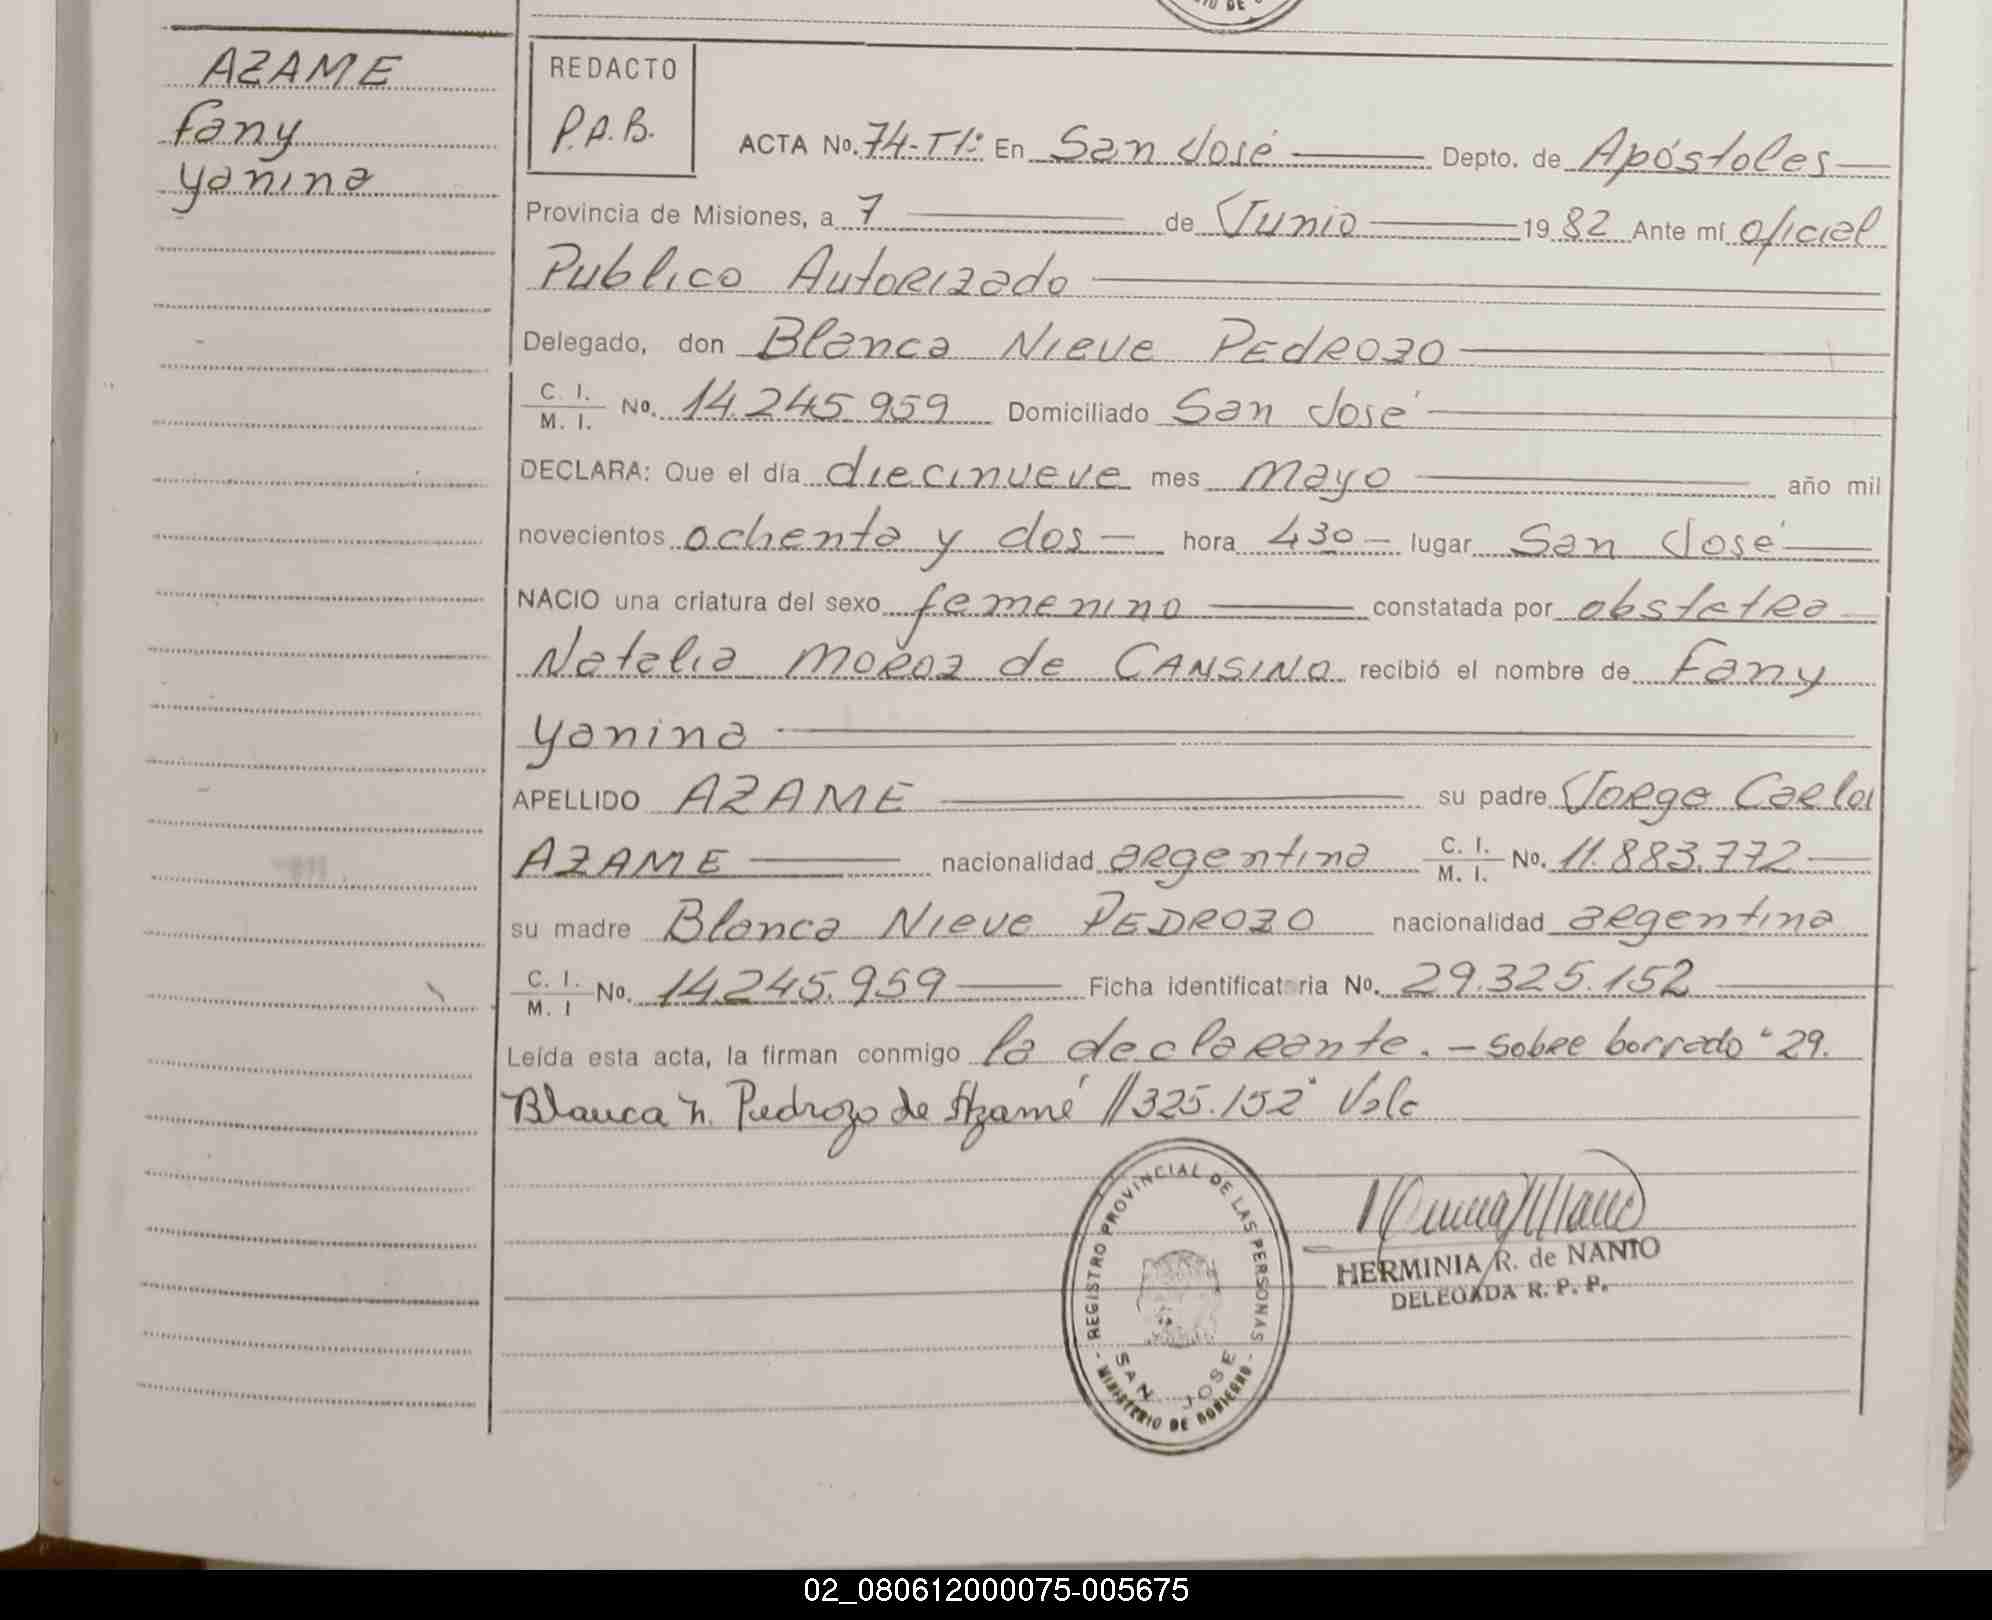 AZAME
Fany
Yanina
REDACTO
P.A.B.
ACTA No. 74-T1: En San José Depto. de Apóstoles
Provincia de Misiones, a 7 de Junio 19 82 Ante mí oficial
Publico Autorizado
Delegado, don Blanca Nieve PEDROZO
C. I. / M. I. No. 14.245.959 Domiciliado San José
DECLARA: Que el día diecinueve mes mayo año mil
novecientos ochenta y dos - hora 430 - lugar San José
NACIO una criatura del sexo femenino constatada por obstetra
Natalia MOROZ de CANSINO recibió el nombre de Fany
Yanina
APELLIDO AZAME su padre Jorge Carlos
AZAME nacionalidad argentina C. I. / M. I. No. 11.883.772
su madre Blanca Nieve PEDROZO nacionalidad argentina
C. I. / M. I No. 14.245.959 Ficha identificatoria No. 29.325.152
Leída esta acta, la firman conmigo la declarante. - sobre borrado "29.
Blanca N. Pedrozo de Azamé // 325.152" Vale
REGISTRO PROVINCIAL DE LAS PERSONAS
SAN JOSE
MINISTERIO DE GOBIERNO
HERMINIA R. de NANTO
DELEGADA R. P. P.
02_080612000075-005675